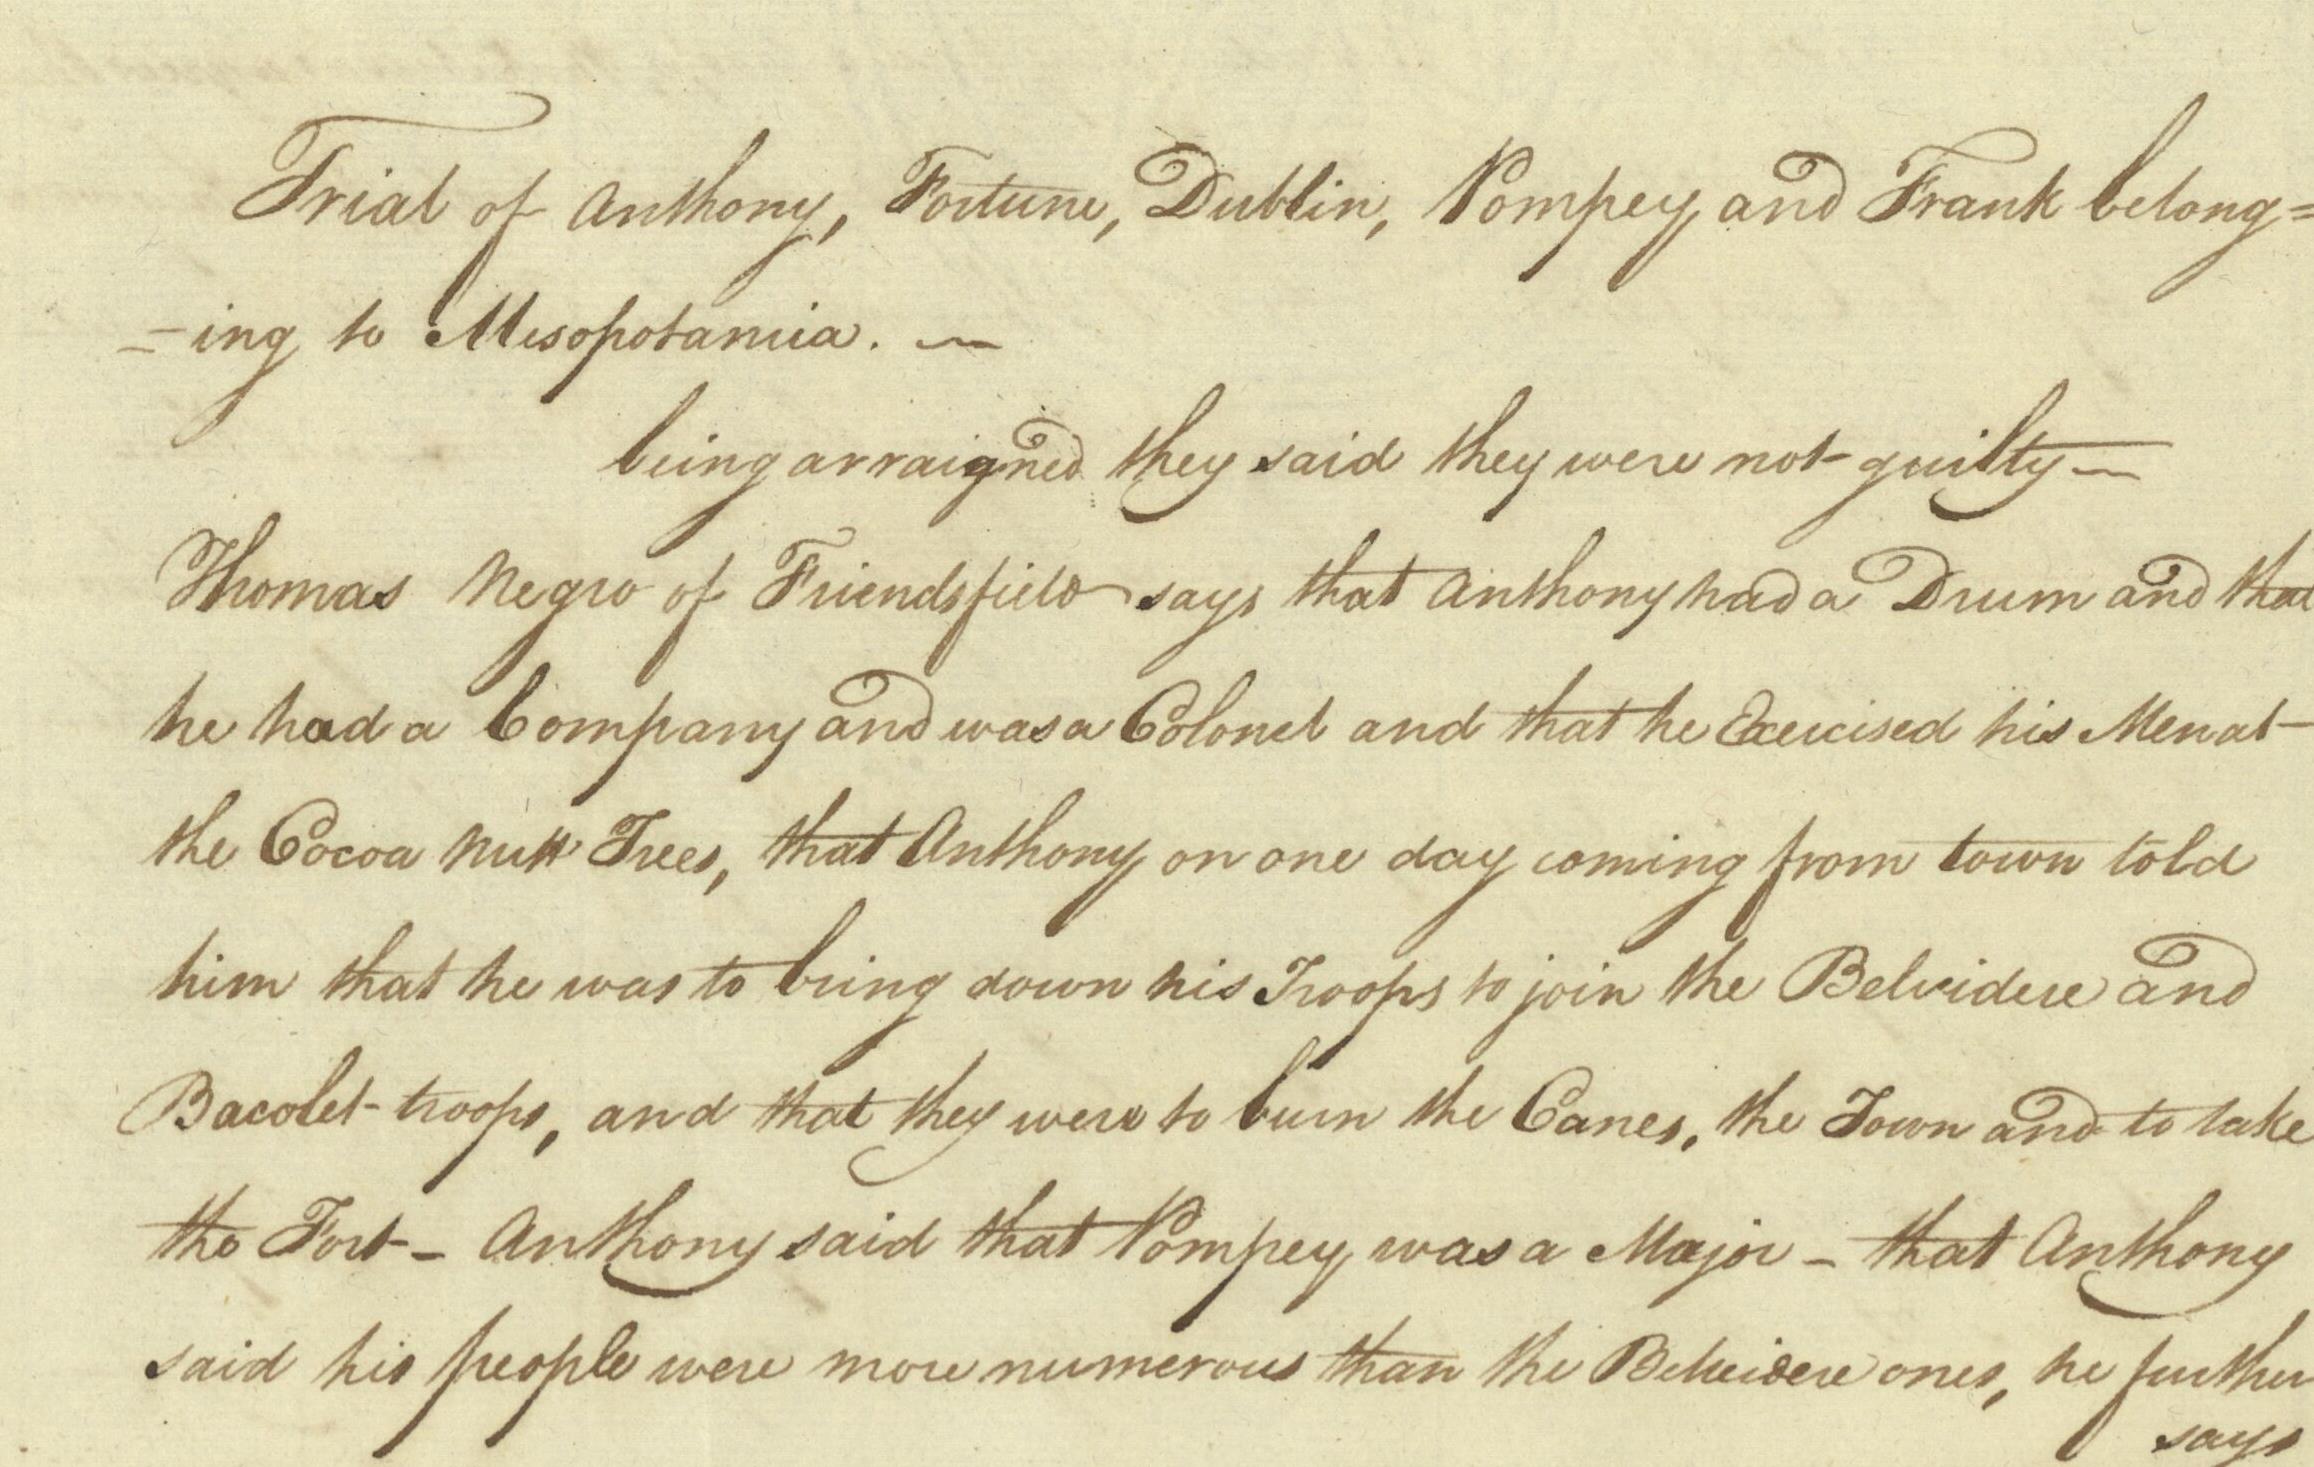 Trial of Anthony, Fortune, Dublin, Pompey and Frank belong=
=ing to Mesopotamia. ~
being arraigned they said they were not guilty ~
Thomas Negro of Friendsfield says that Anthony had a Drum and that
he had a Company and was a Colonel and that he Exercised his Men at
the Cocoa Nutt Trees, that Anthony on one day coming from town told
him that he was to bring down his Troops to join the Belvidere and
Bacolet troops, and that they were to burn the Canes, the Town and to take
the Fort - Anthony said that Pompey was a Major - that Anthony
said his people were more numerous than the Belvidere ones, he further
says